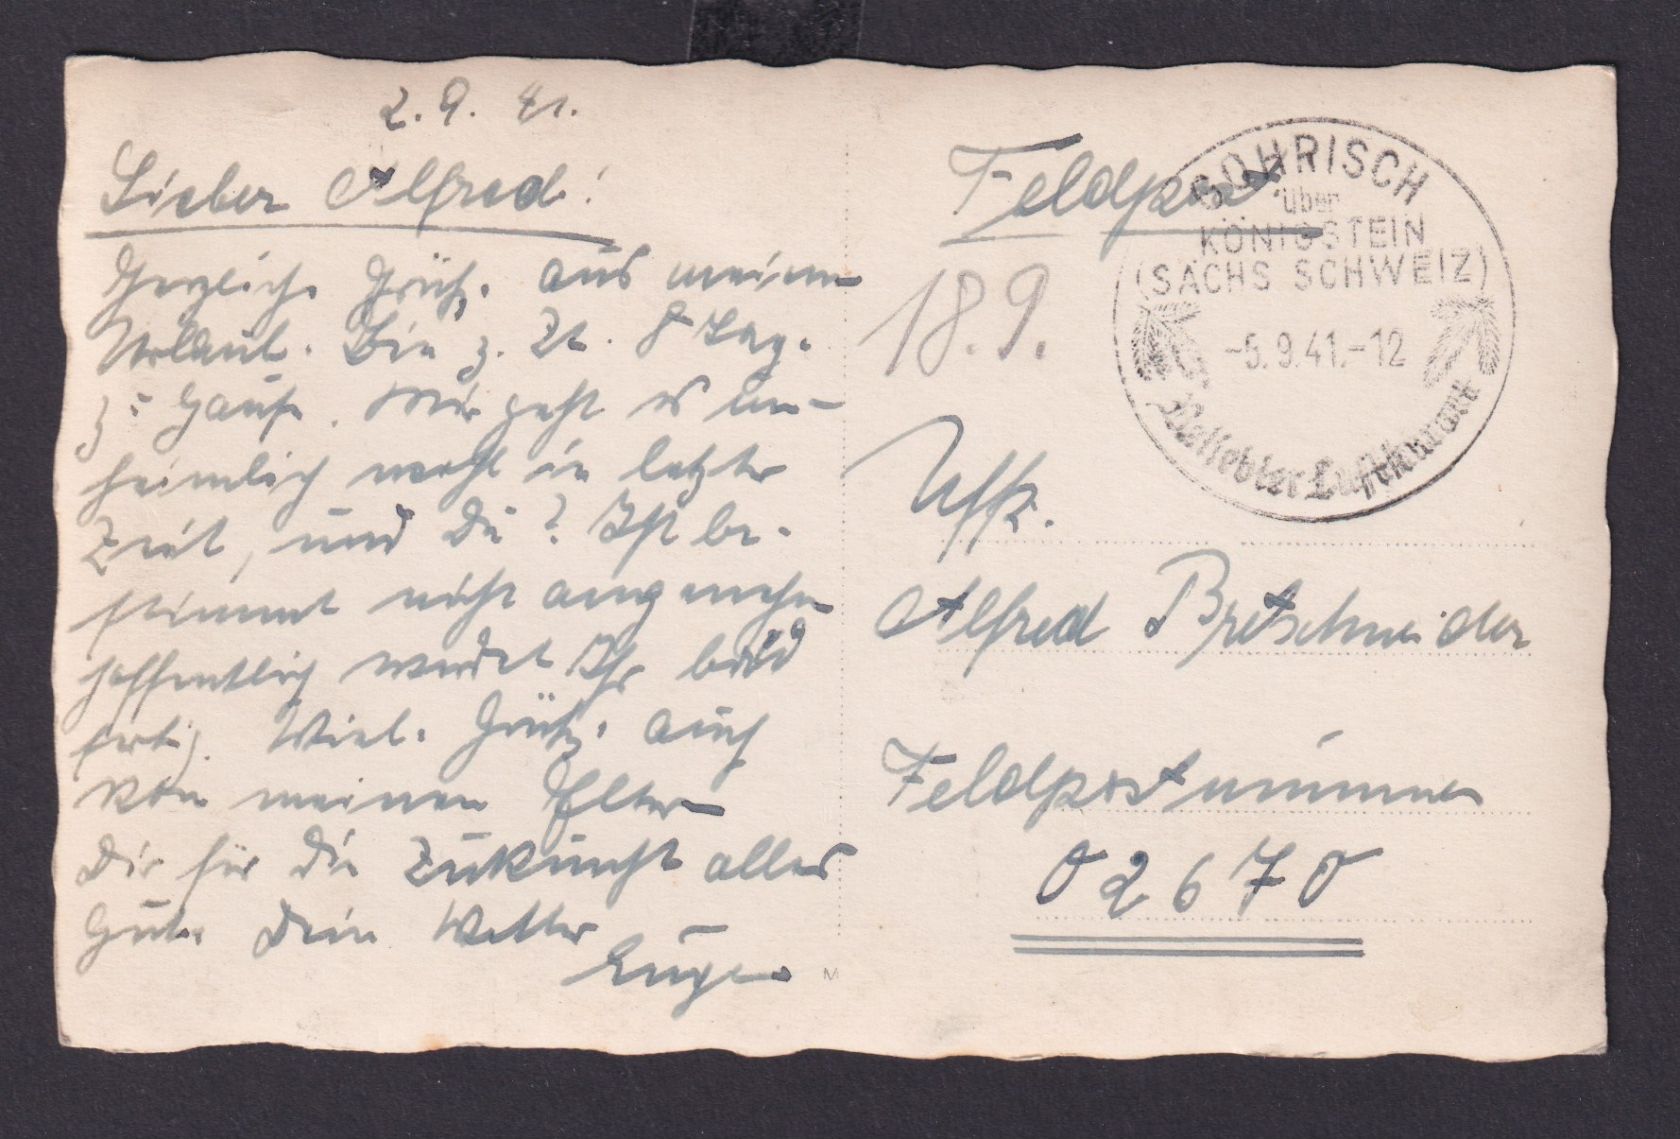 2. 9. 41.
Lieber Alfred!
Herzliche Grüße aus meinem
Urlaub. Bin z. Zt. 8 Tage
z. Hause. Mir geht es un-
heimlich wohl in letzter
Zeit, und Du? Ist be-
stimmt nicht angenehm
hoffentlich werdet Ihr bald
fertig. Viele Grüße auch
von meinen Eltern
Dir für die Zukunft alles
Gute Dein Vetter
Eugen
M
Feldpost
18.9.
GOHRISCH
über
KÖNIGSTEIN
(SÄCHS SCHWEIZ)
-5.9.41.-12
Beliebter Luftkurort
Uffz.
Alfred Bretschneider
Feldpostnummer
02670